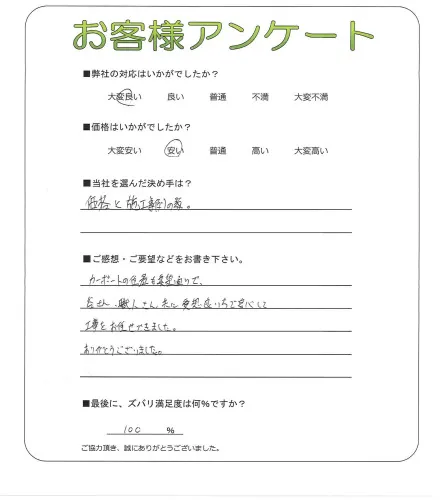 お客様アンケート
■弊社の対応はいかがでしたか？
大変良い 良い 普通 不満 大変不満
■価格はいかがでしたか？
大変安い 安い 普通 高い 大変高い
■当社を選んだ決め手は？
価格と施工事例の数。
■ご感想・ご要望などをお書き下さい。
カーポートの位置も希望通りで、
職人さん共に愛想良いので安心して
工事をお任せできました。
ありがとうございました。
■最後に、ズバリ満足度は何％ですか？
100 ％
ご協力頂き、誠にありがとうございました。